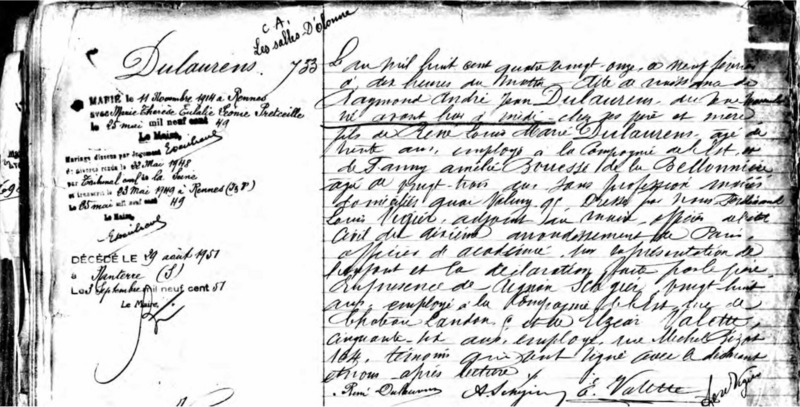 C.A.
Les sables-D'olonne
Dulaurens. 733
MARIÉ le 11 Novembre 1914 à Rennes
avec Marie Thérèse Eulalie
le 25 mai mil neuf cent 49
Le Maire,
Mariage dissous par jugement
de divorce rendu le Mai 1948
par Tribunal civil de la Seine
et transcrit le 23 Mai 1949 à Rennes
le 25 mai mil neuf cent 49
Le Maire,
DÉCÉDÉ LE 29 août 1951
à Nanterre (S)
Le 3 Septembre mil neuf cent 51
Le Maire,
L'an mil huit cent quatre vingt onze, le neuf
à dix heures du matin. Acte de naissance de
Raymond André Jean Dulaurens, du
né avant hier à midi, chez ses père et mère
fils de René Louis Marie Dulaurens, âgé de
trente ans, employé à la Compagnie de l'Est, et
de Fanny Amélie de la Bellonnière
âgé de vingt-trois ans sans profession mariés
domiciliés quai Valmy, 95, Dressé par Nous Ferdinand
Louis Vigier, adjoint au maire, officier de l'état
Civil du dixième arrondissement de Paris,
officier d'académie, sur présentation de
l'enfant et la déclaration faite par le père.
En présence de vingt huit
ans, employé à la Compagnie de l'Est, rue de
Chateau Landon, et de Elzéar Valette,
cinquante-six ans, employé, rue Michel Bizot
164, témoins qui ont signé avec le déclarant
et nous après lecture.
René Dulaurens E. Valette